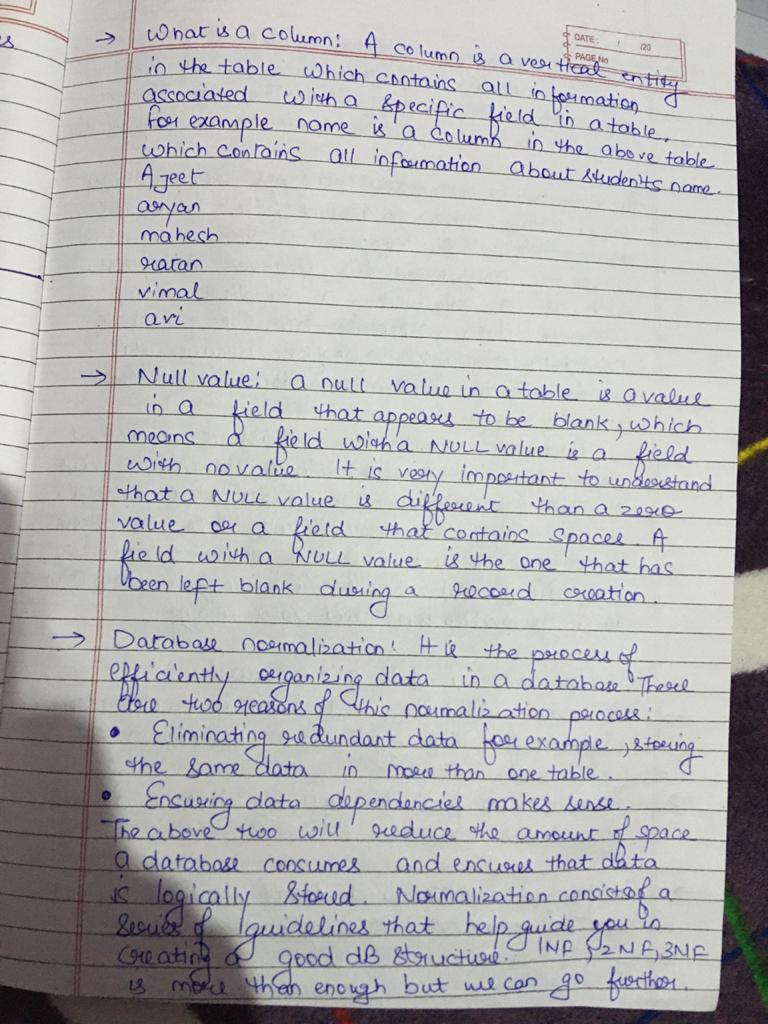 DATE: / /20
PAGE No
s
→ What is a column: A column is a vertical entity
in the table which contains all information
associated with a specific field in a table.
for example name is a column in the above table
which contains all information about students name.
Ajeet
aryan
mahesh
ratan
vimal
avi
→ Null value: a null value in a table is a value
in a field that appears to be blank, which
means a field with a NULL value is a field
with no value. It is very important to understand
that a NULL value is different than a zero
value or a field that contains spaces. A
field with a NULL value is the one that has
been left blank during a record creation.
→ Database normalization: It is the process of
efficiently organizing data in a database. There
are two reasons of this normalization process:
• Eliminating redundant data for example, storing
the same data in more than one table.
• Ensuring data dependencies makes sense.
The above two will reduce the amount of space
a database consumes and ensures that data
is logically stored. Normalization consists of a
series of guidelines that help guide you in
creating a good dB structure. 1NF, 2NF, 3NF
is more than enough but we can go further.